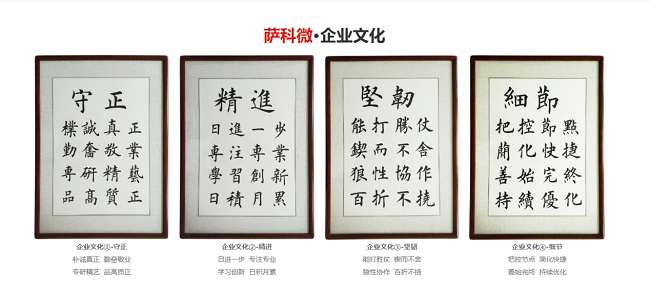 萨科微·企业文化
守正
樸誠真正
勤奮敬業
專研精藝
品高質正
精進
日進一步
專注專業
學習創新
日積月累
堅韌
能打勝仗
鍥而不舍
狼性協作
百折不撓
細節
把控節點
簡化快捷
善始善終
持續優化
企业文化①-守正
朴诚真正 勤奋敬业
专研精艺 品高质正
企业文化②-精进
日进一步 专注专业
学习创新 日积月累
企业文化③-坚韧
能打胜仗 锲而不舍
狼性协作 百折不挠
企业文化④-细节
把控节点 简化快捷
善始完终 持续优化